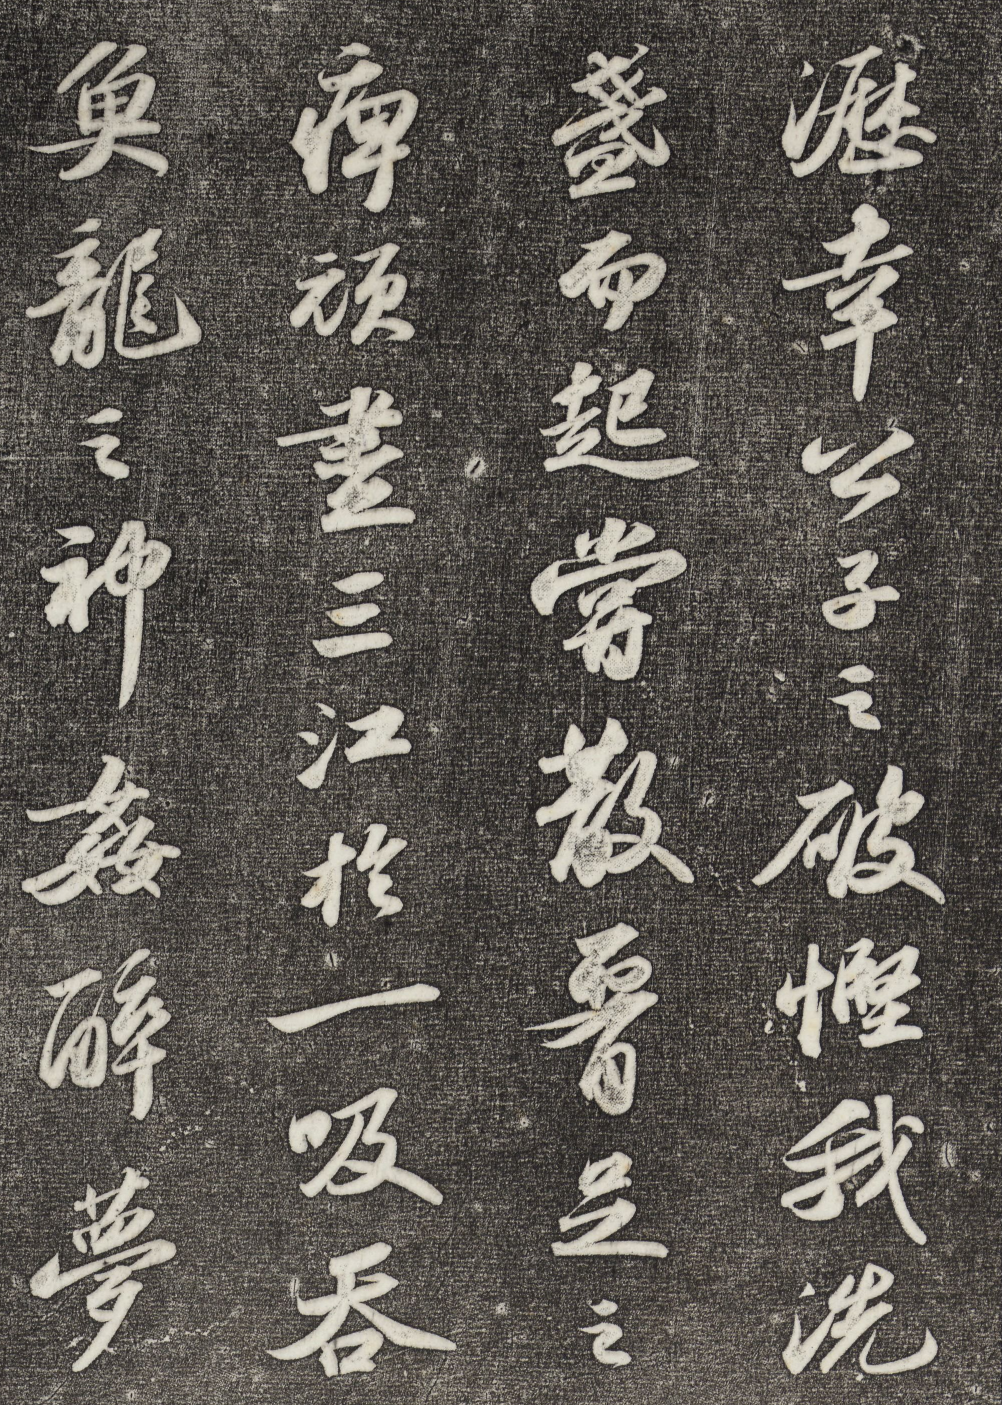 瀝幸公子之破慳我洗
盞而起嘗散腎足之
痹頑盡三江於一吸吞
魚龍之神姦醉夢